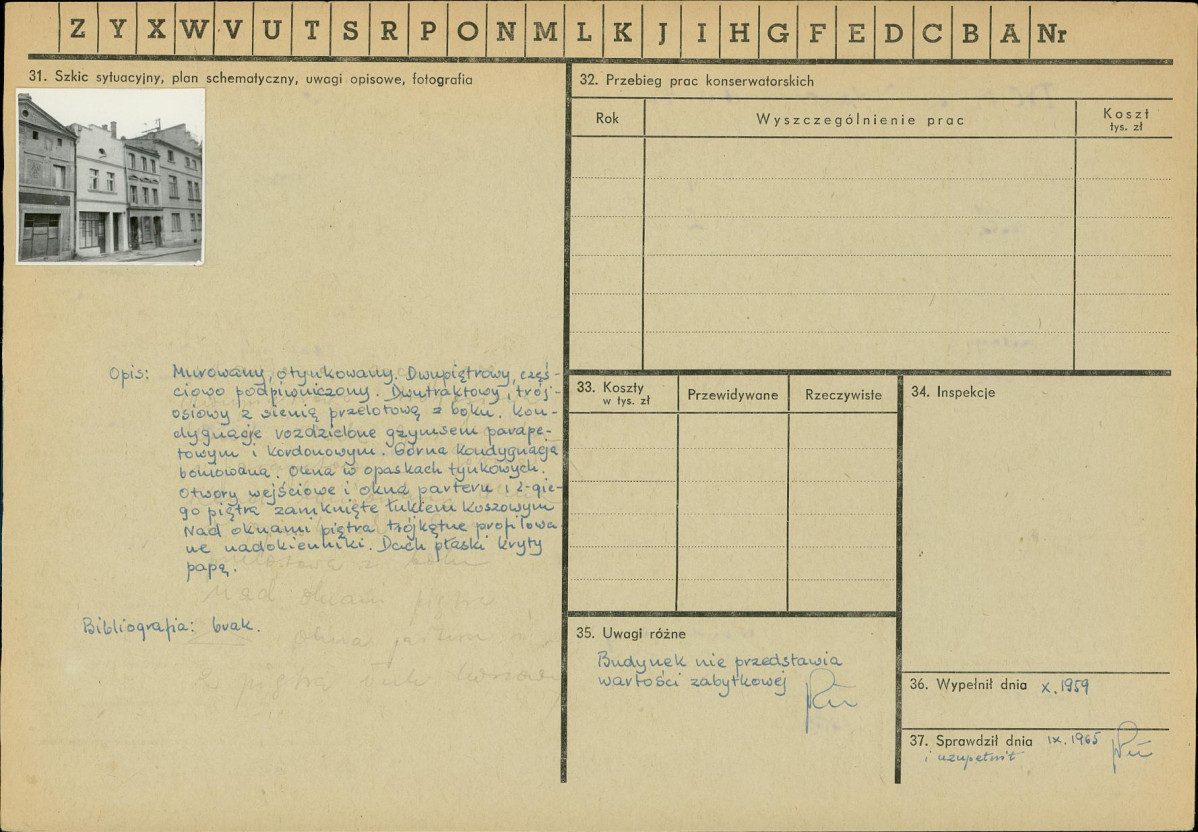 Z Y X W V U T S R P O N M L K J I H G F E D C B A Nr
31. Szkic sytuacyjny, plan schematyczny, uwagi opisowe, fotografia
Opis: Murowany, otynkowany. Dwupiętrowy, częś-
ciowo podpiwniczony. Dwutraktowy, trój-
osiowy z sienią przelotową z boku. Kon-
dygnacje rozdzielone gzymsem parape-
towym i kordonowym. Górna kondygnacja
boniowana. Okna w opaskach tynkowych.
Otwory wejściowe i okna parteru i 2-gie-
go piętra zamknięte łukiem koszowym
Nad oknami piętra trójkątne profilowa-
ne nadokienniki. Dach płaski kryty
papą.
z boku
nad oknami piętra
okna
piętra
Bibliografia: brak.
32. Przebieg prac konserwatorskich
Rok
Wyszczególnienie prac
Koszt
tys. zł
33. Koszty
w tys. zł
Przewidywane
Rzeczywiste
34. Inspekcje
35. Uwagi różne
Budynek nie przedstawia
wartości zabytkowej
36. Wypełnił dnia X.1959
37. Sprawdził dnia IX.1965
i uzupełnił